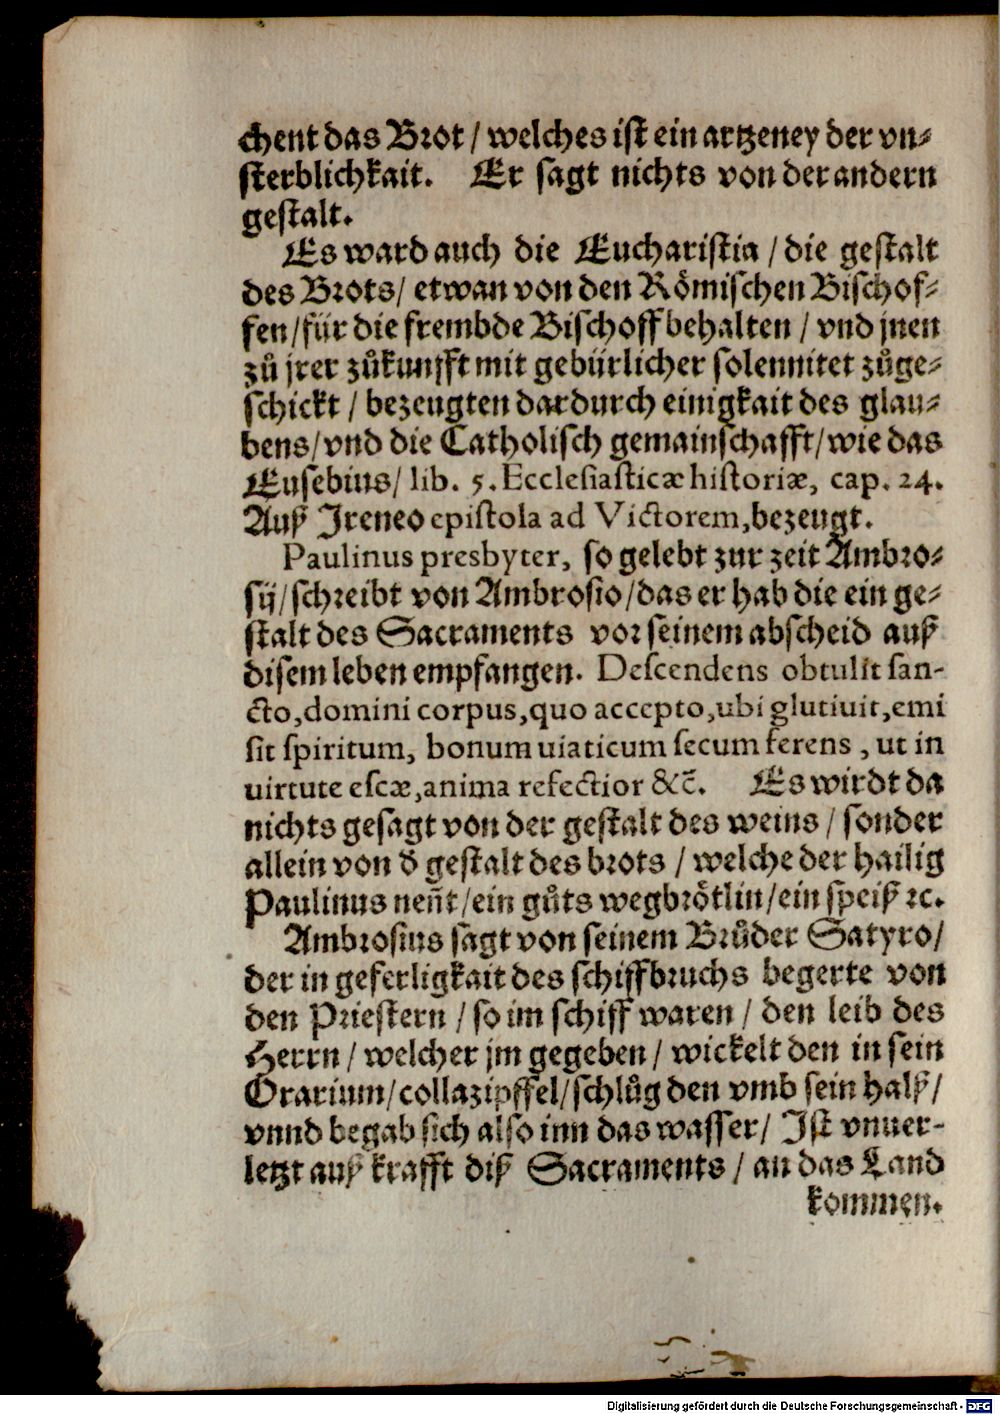 chent das Brot / welches ist ein artzeney der vn⸗
sterblichkait. Er sagt nichts von der andern
gestalt.
Es ward auch die Eucharistia / die gestalt
des Brots/ etwan von den Römischen Bischof⸗
fen/für die frembde Bischoff behalten / vnd jnen
zů jrer zůkunfft mit gebürlicher solennitet zůge⸗
schickt / bezeugten dardurch einigkait des glau⸗
bens/vnd die Catholisch gemainschafft/wie das
Eusebius/ lib. 5. Ecclesiasticæ historiæ, cap. 24.
Auß Ireneo epistola ad Victorem, bezeugt.
Paulinus presbyter, so gelebt zur zeit Ambro⸗
sij/schreibt von Ambrosio/das er hab die ein ge⸗
stalt des Sacraments vor seinem abscheid auß
disem leben empfangen. Descendens obtulit san-
cto,domini corpus,quo accepto,ubi glutiuit,emi
sit spiritum, bonum uiaticum secum ferens , ut in
uirtute escæ,anima refectior &c̄. Es wirdt da
nichts gesagt von der gestalt des weins / sonder
allein von d̓ gestalt des brots / welche der hailig
Paulinus neñt/ein gůts wegbrötlin/ein speiß ꝛc.
Ambrosius sagt von seinem Brůder Satyro/
der in geferligkait des schiffbruchs begerte von
den Priestern / so im schiff waren / den leib des
Herrn / welcher jm gegeben / wickelt den in sein
Orarium/collazipffel/schlůg den vmb sein halß/
vnnd begab sich also inn das wasser/ Ist vnuer-
letzt auß krafft diß Sacraments / an das Land
kommen.
Digitalisierung gefördert durch die Deutsche Forschungsgemeinschaft - DFG